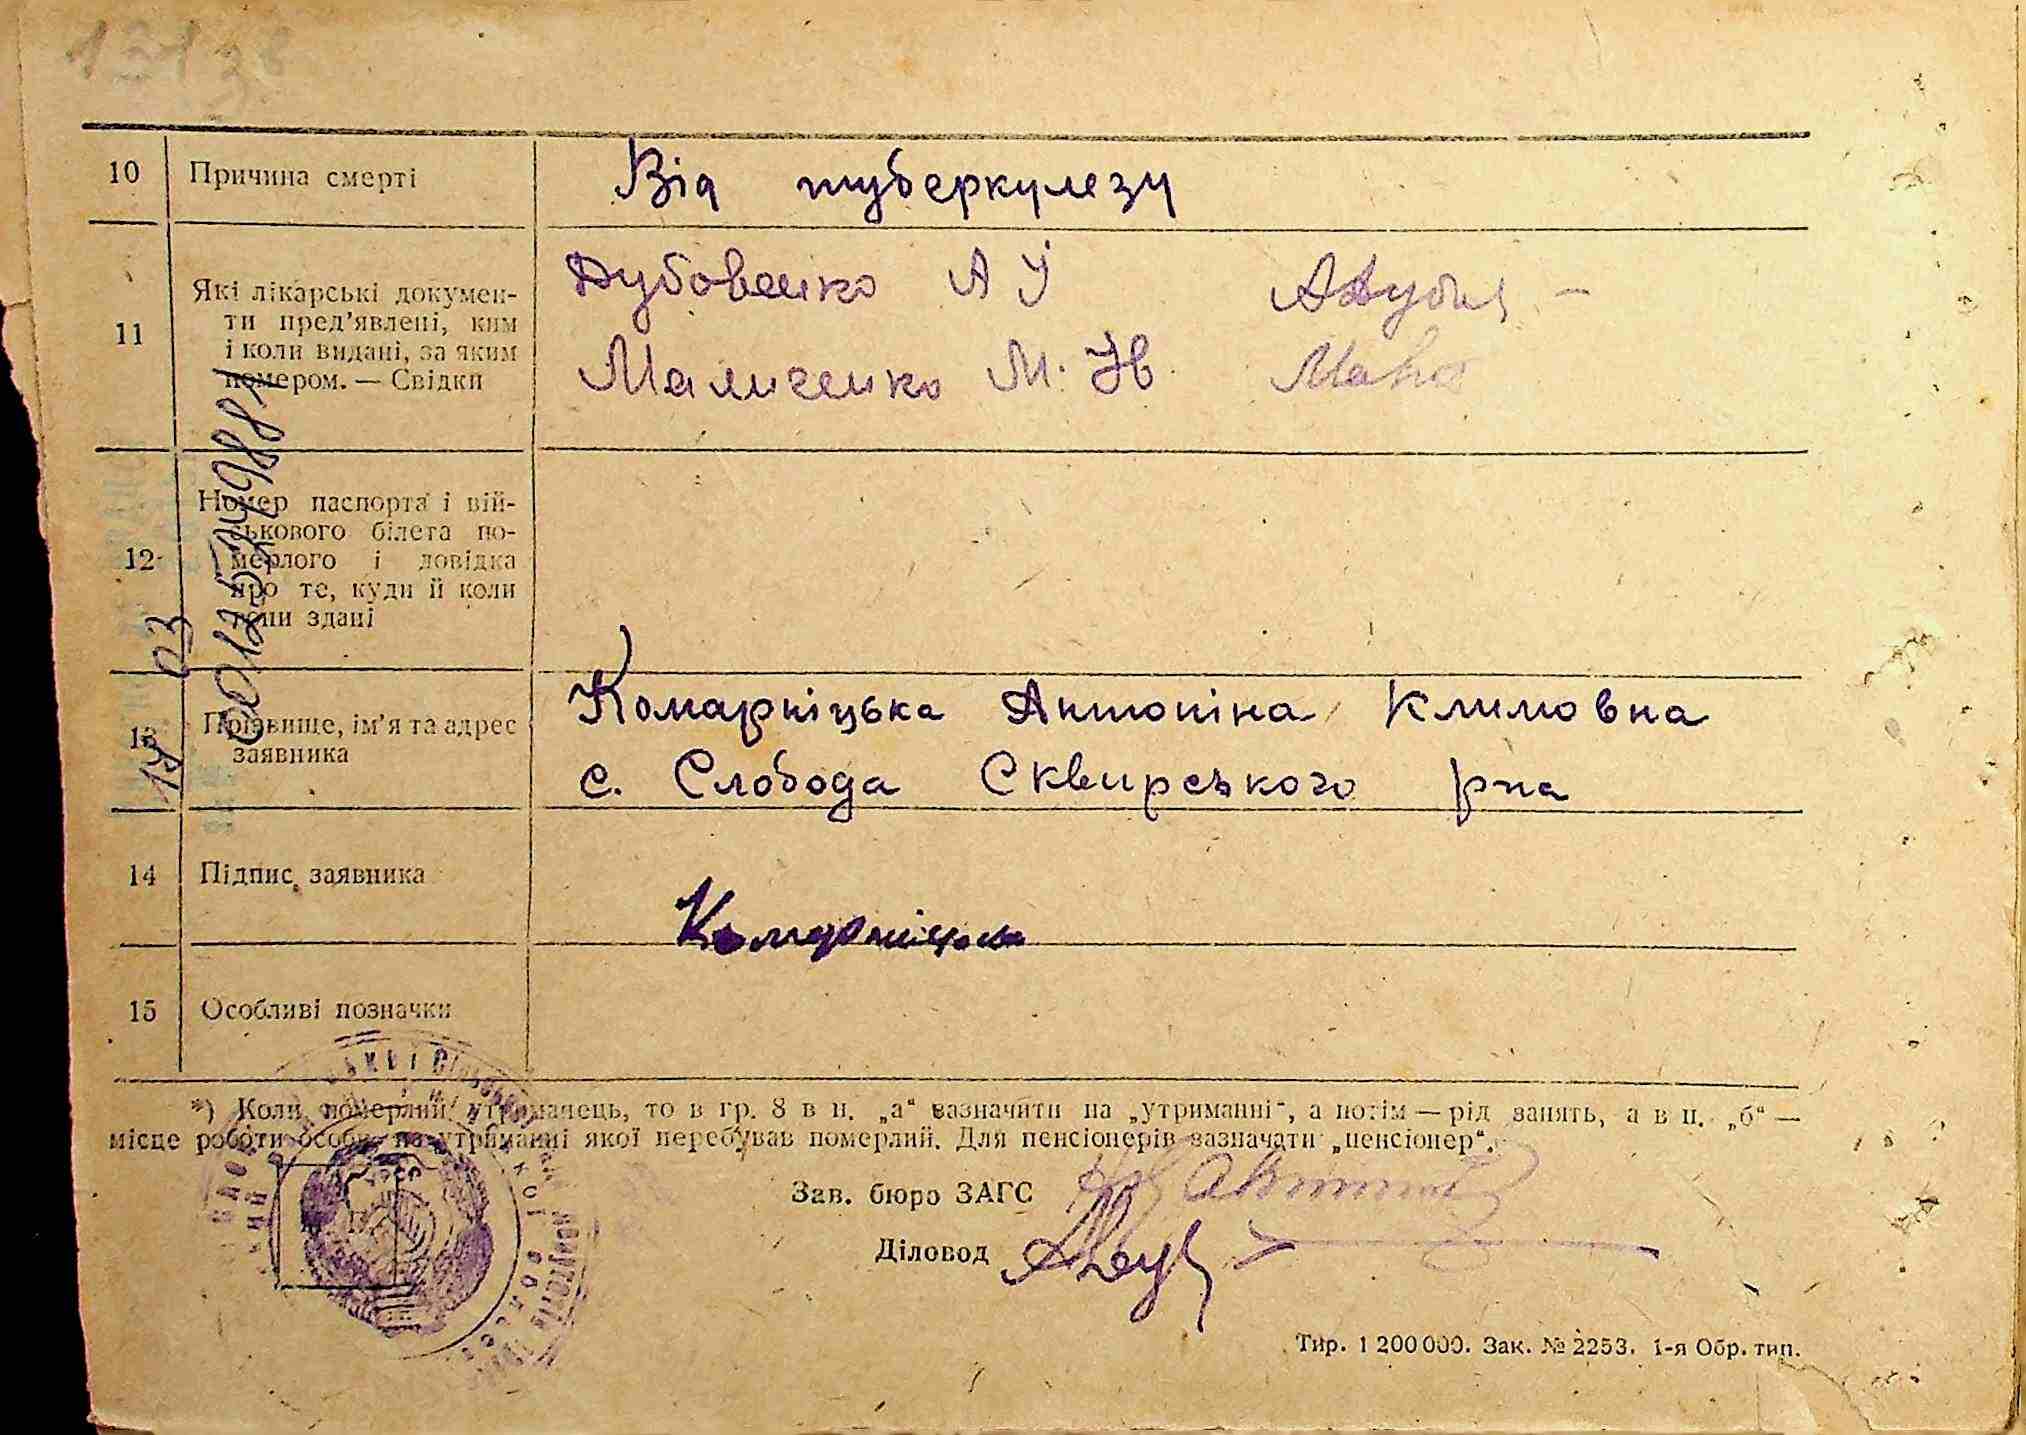 10 Причина смерті Від туберкулезу
11 Які лікарські докумен-
ти пред'явлені, ким
і коли видані, за яким
номером. — Свідки
Дубовенко А У
Малисенко М. Ів.
12 Номер паспорта і вій-
ськового білета по-
мерлого і довідка
про те, куди й коли
вони здані
13 Прізвище, ім'я та адрес
заявника
Комарніцька Антоніна Климовна
с. Слобода Сквирського р-на
14 Підпис заявника
Комарніцька
15 Особливі позначки
*) Коли померлий утриманець, то в гр. 8 в п. „а“ вазначити на „утриманні“, а потім — рід занять, а в п. „б“ —
місце роботи особи, на утриманні якої перебував померлий. Для пенсіонерів зазначати „пенсіонер“.
Зав. бюро ЗАГС
Діловод
Тир. 1 200 000. Зак. № 2253. 1-я Обр. тип.